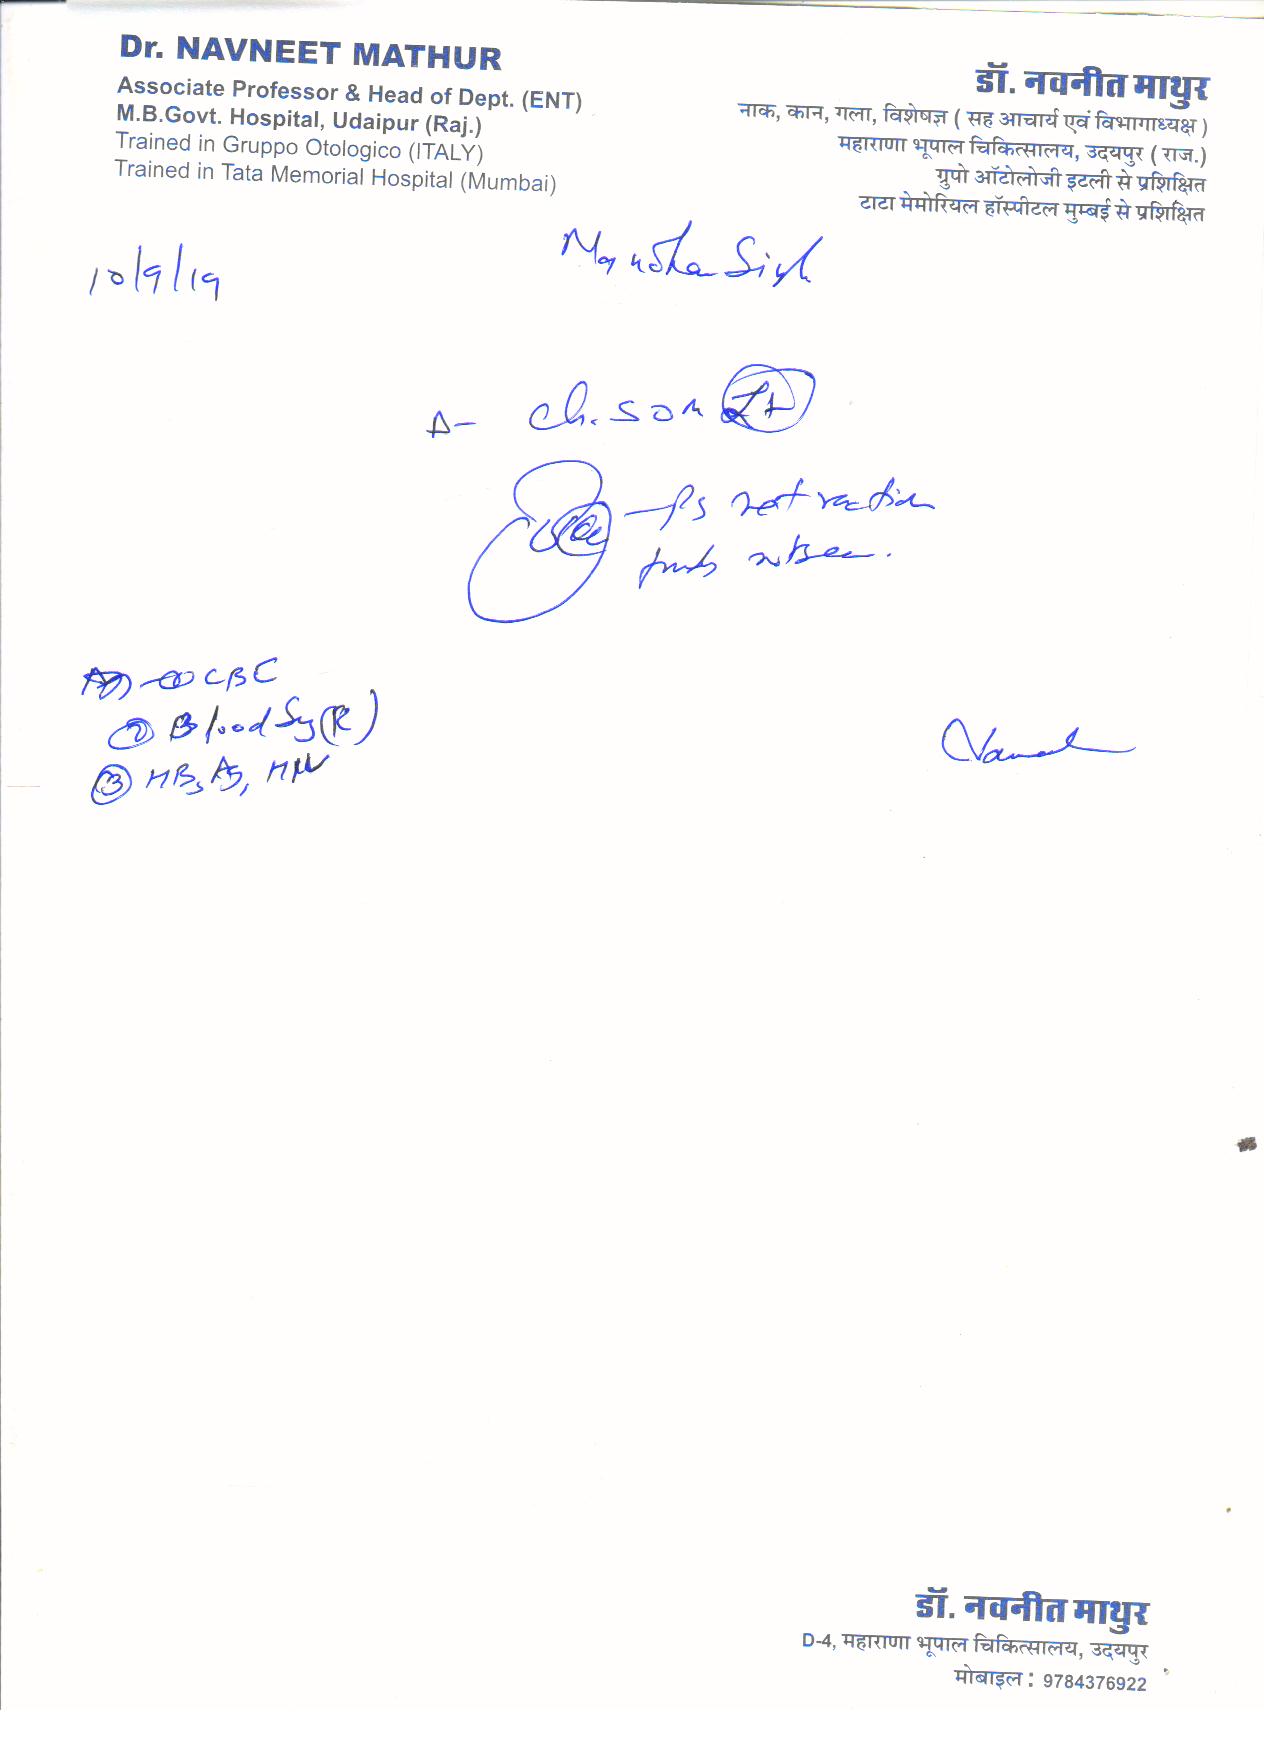 Dr. NAVNEET MATHUR
Associate Professor & Head of Dept. (ENT)
M.B.Govt. Hospital, Udaipur (Raj.)
Trained in Gruppo Otologico (ITALY)
Trained in Tata Memorial Hospital (Mumbai)
डॉ. नवनीत माथुर
नाक, कान, गला, विशेषज्ञ ( सह आचार्य एवं विभागाध्यक्ष )
महाराणा भूपाल चिकित्सालय, उदयपुर ( राज.)
ग्रुपो ऑटोलोजी इटली से प्रशिक्षित
टाटा मेमोरियल हॉस्पीटल मुम्बई से प्रशिक्षित
10/9/19
Δ- Ch. SOM
retraction
CBC
② Blood (R)
③
डॉ. नवनीत माथुर
D-4, महाराणा भूपाल चिकित्सालय, उदयपुर
मोबाइल : 9784376922